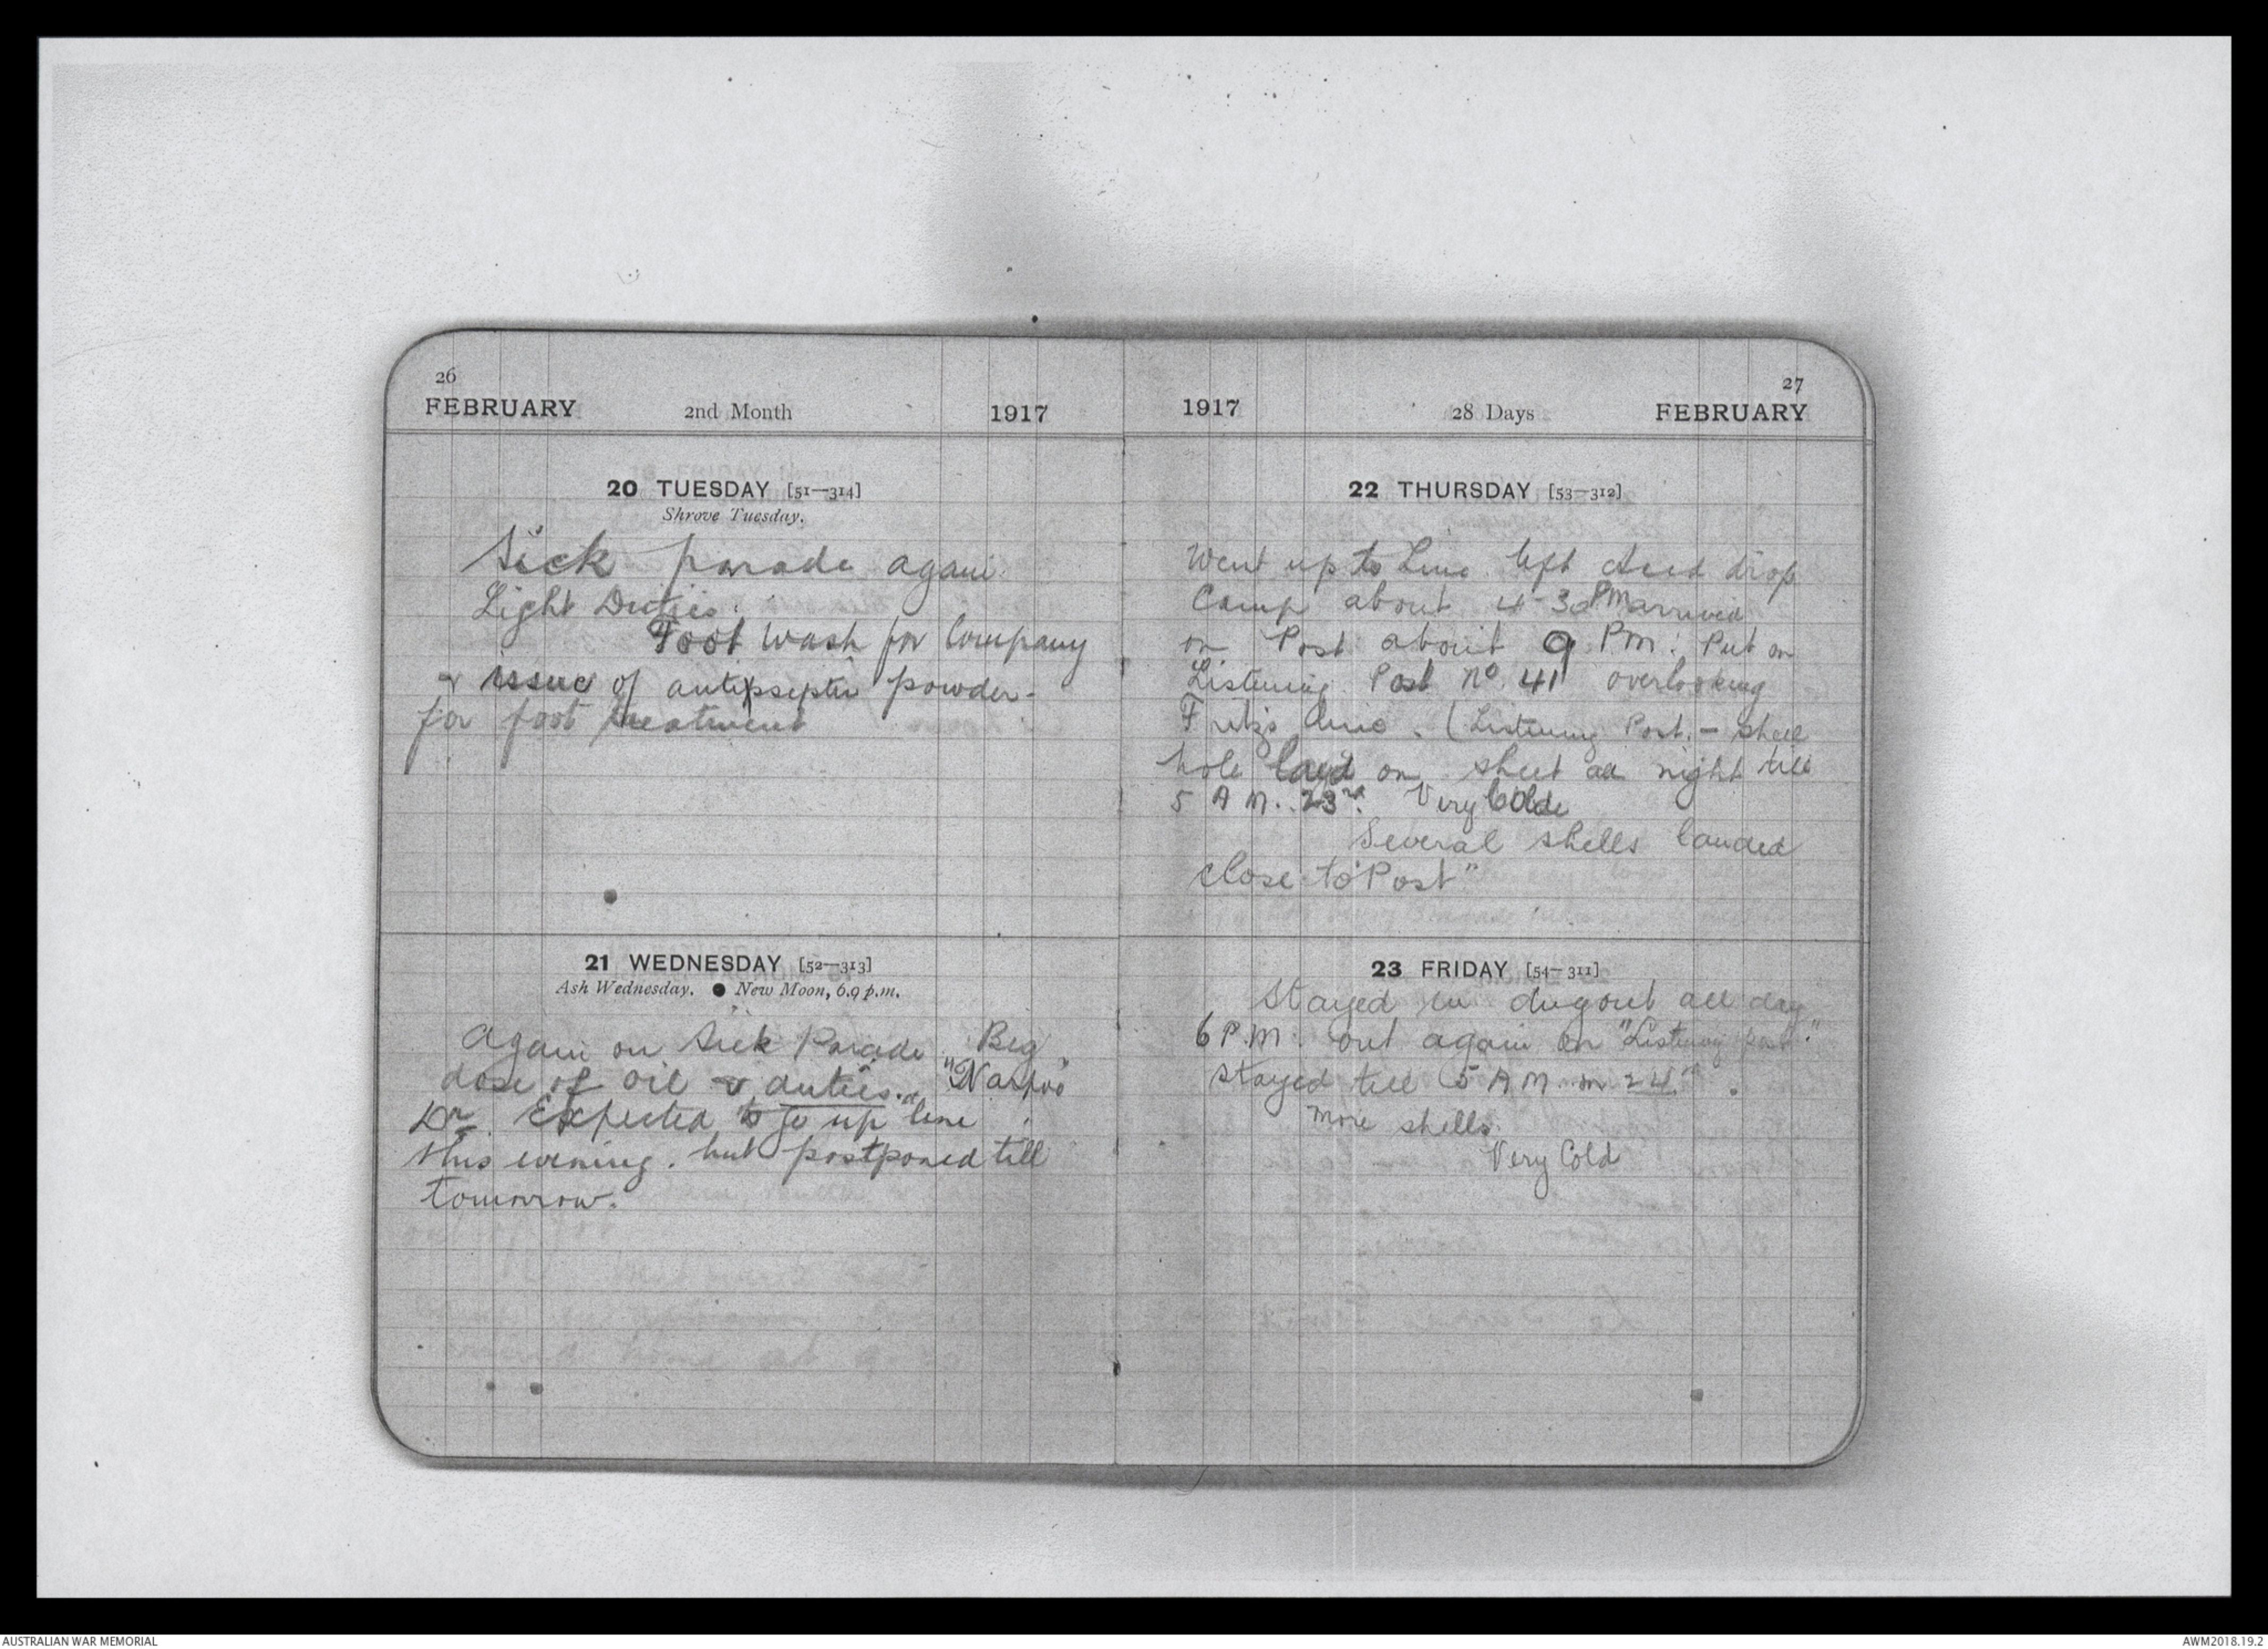 26
FEBRUARY 2nd Month 1917
20 TUESDAY [51—314]
Shrove Tuesday.
Sick parade again.
Light Duties.
Foot Wash for Company
& issue of antipseptic powder
for foot treatment
21 WEDNESDAY [52—313]
Ash Wednesday. ● New Moon, 6.9 p.m.
Again on Sick Parade. Big
dose of oil & duties.
Dr. Expected to go up line
this evening. but postponed till
tomorrow.
27
1917 28 Days FEBRUARY
22 THURSDAY [53—312]
Went up to Line. left Acid drop
Camp about 4-30 PM arrived
on Post about 9 PM: Put on
Listening Post No. 41 overlooking
Fritzs line. (Listening Post. - shell
hole laid on sheet all night till
5 AM. 23rd. Very Colde
Several shells landed
close to "Post"
23 FRIDAY [54—311]
Stayed in dugout all day
6 P.M. out again on "Listening post."
stayed till 5 AM on 24th.
More shells.
Very Cold
AUSTRALIAN WAR MEMORIAL
AWM2018.19.2